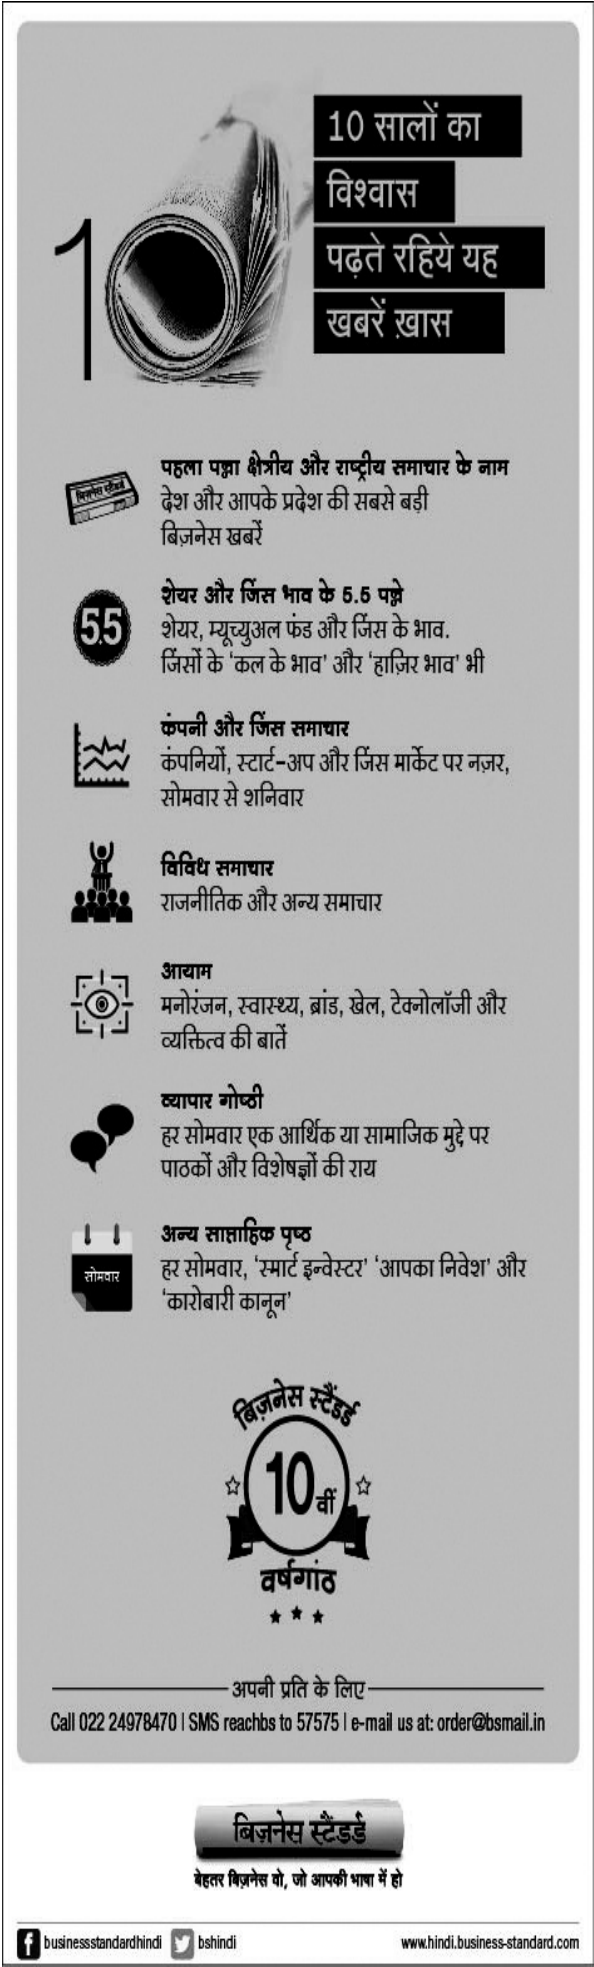 10 सालों का
विश्वास
पढ़ते रहिये यह
खबरें ख़ास
10
पहला पन्ना क्षेत्रीय और राष्ट्रीय समाचार के नाम
बिज़नेस स्टैंडर्ड
देश और आपके प्रदेश की सबसे बड़ी
बिज़नेस खबरें
शेयर और जिंस भाव के 5.5 पन्ने
5.5
शेयर, म्यूच्युअल फंड और जिंस के भाव.
जिंसों के 'कल के भाव' और 'हाज़िर भाव' भी
कंपनी और जिंस समाचार
कंपनियों, स्टार्ट-अप और जिंस मार्केट पर नज़र,
सोमवार से शनिवार
विविध समाचार
राजनीतिक और अन्य समाचार
आयाम
मनोरंजन, स्वास्थ्य, ब्रांड, खेल, टेक्नोलॉजी और
व्यक्तित्व की बातें
व्यापार गोष्ठी
हर सोमवार एक आर्थिक या सामाजिक मुद्दे पर
पाठकों और विशेषज्ञों की राय
अन्य साप्ताहिक पृष्ठ
सोमवार
हर सोमवार, 'स्मार्ट इन्वेस्टर' 'आपका निवेश' और
'कारोबारी कानून'
बिज़नेस स्टैंडर्ड
10 वीं
वर्षगांठ
अपनी प्रति के लिए
Call 022 24978470 | SMS reachbs to 57575 | e-mail us at: order@bsmail.in
बिज़नेस स्टैंडर्ड
बेहतर बिज़नेस वो, जो आपकी भाषा में हो
businessstandardhindi bshindi www.hindi.business-standard.com